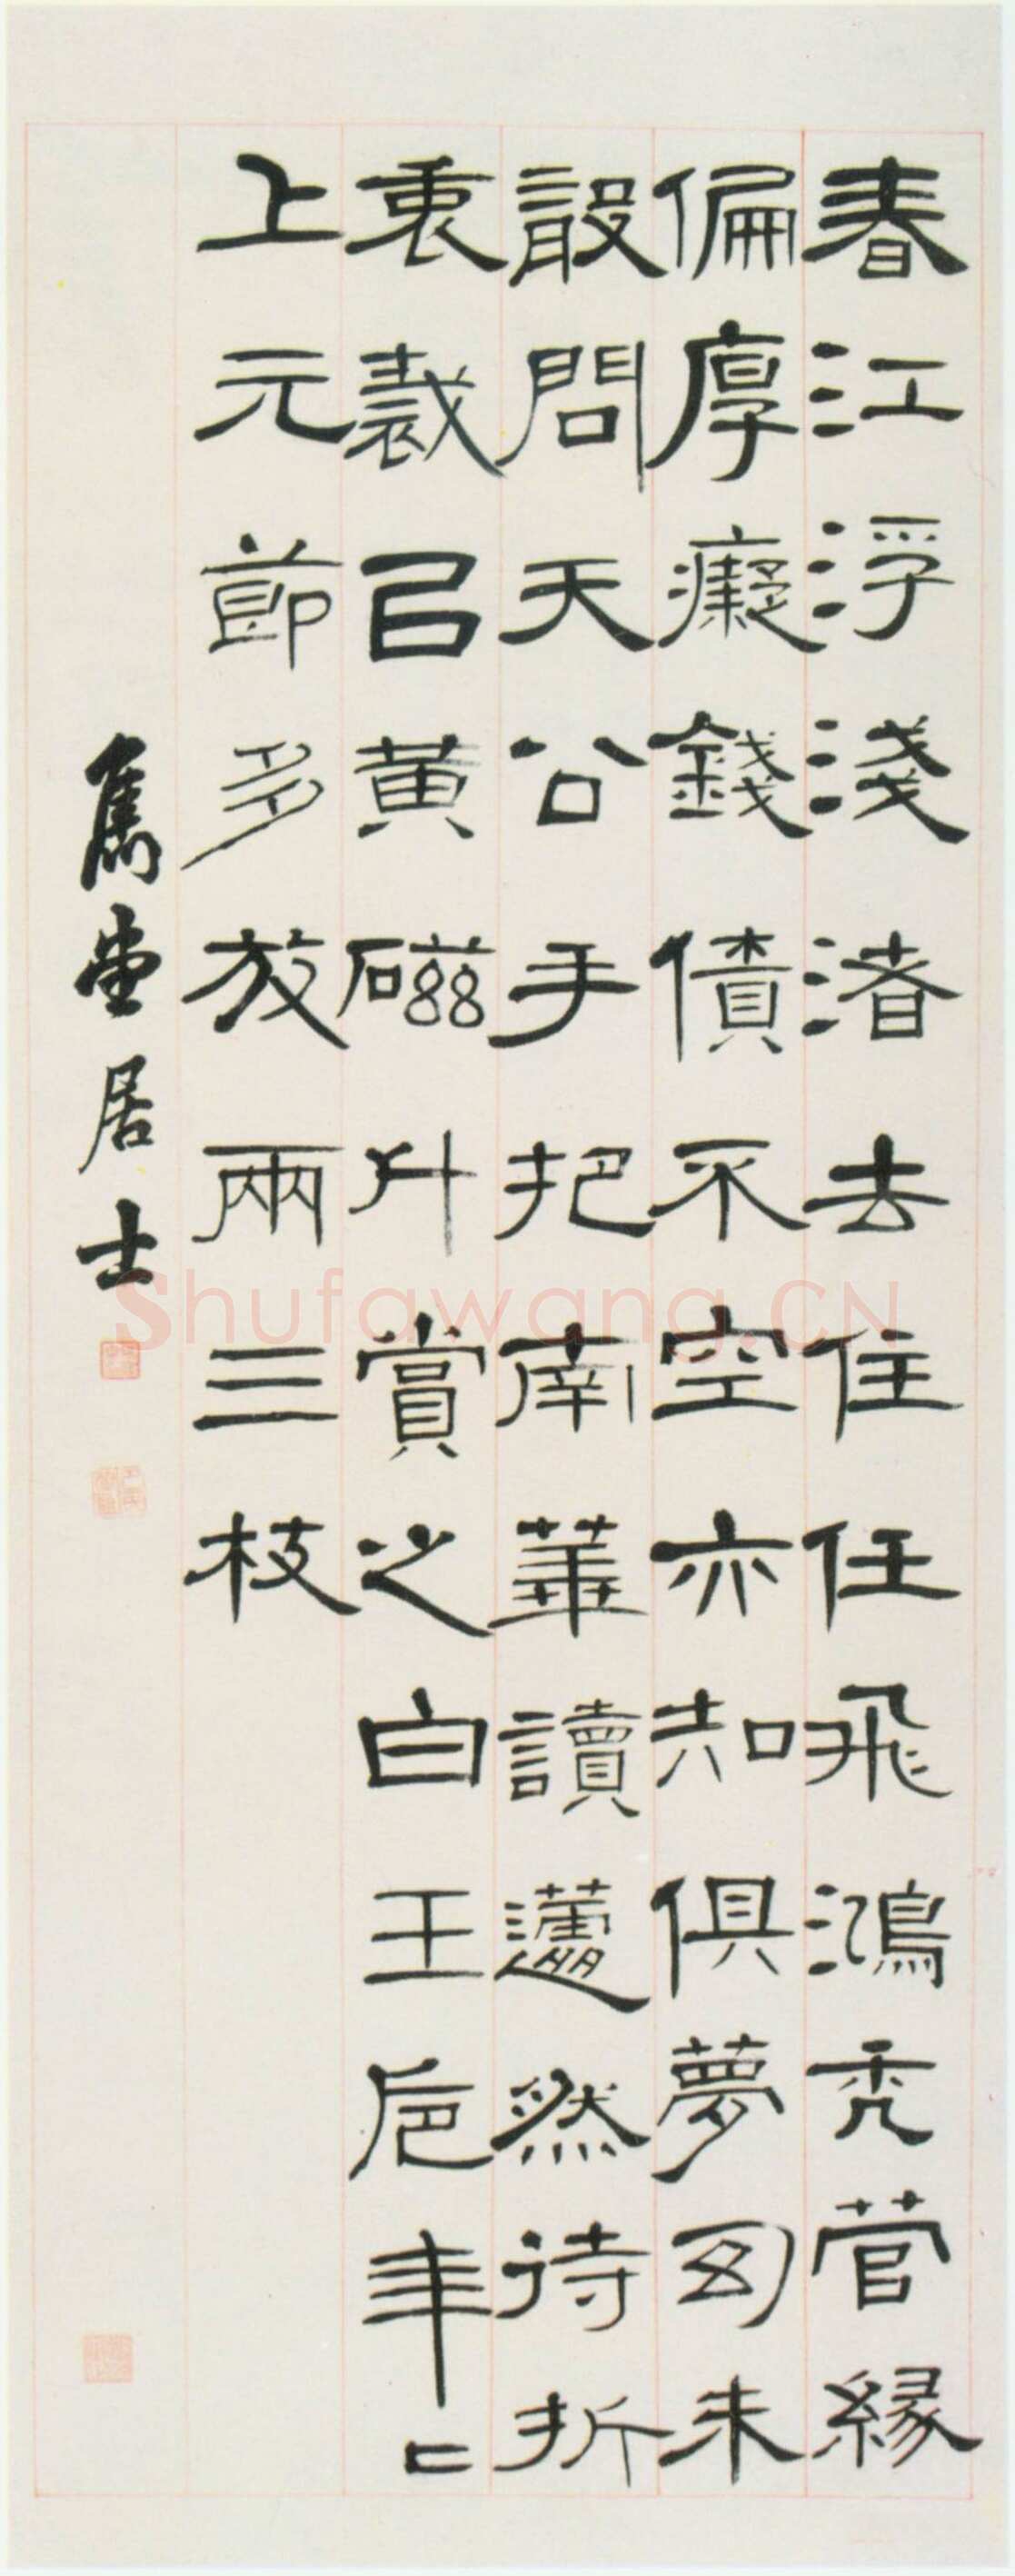 春江浮淺渚去住任飛鴻禿菅緣
偏厚癡錢債不空亦知俱夢幻未
設問天公手把南華讀蘧然待折
衷裁㠯黃磁斗賞之白玉卮年〻
上元節多放兩三枝
雋堂居士
Shufawang.CN